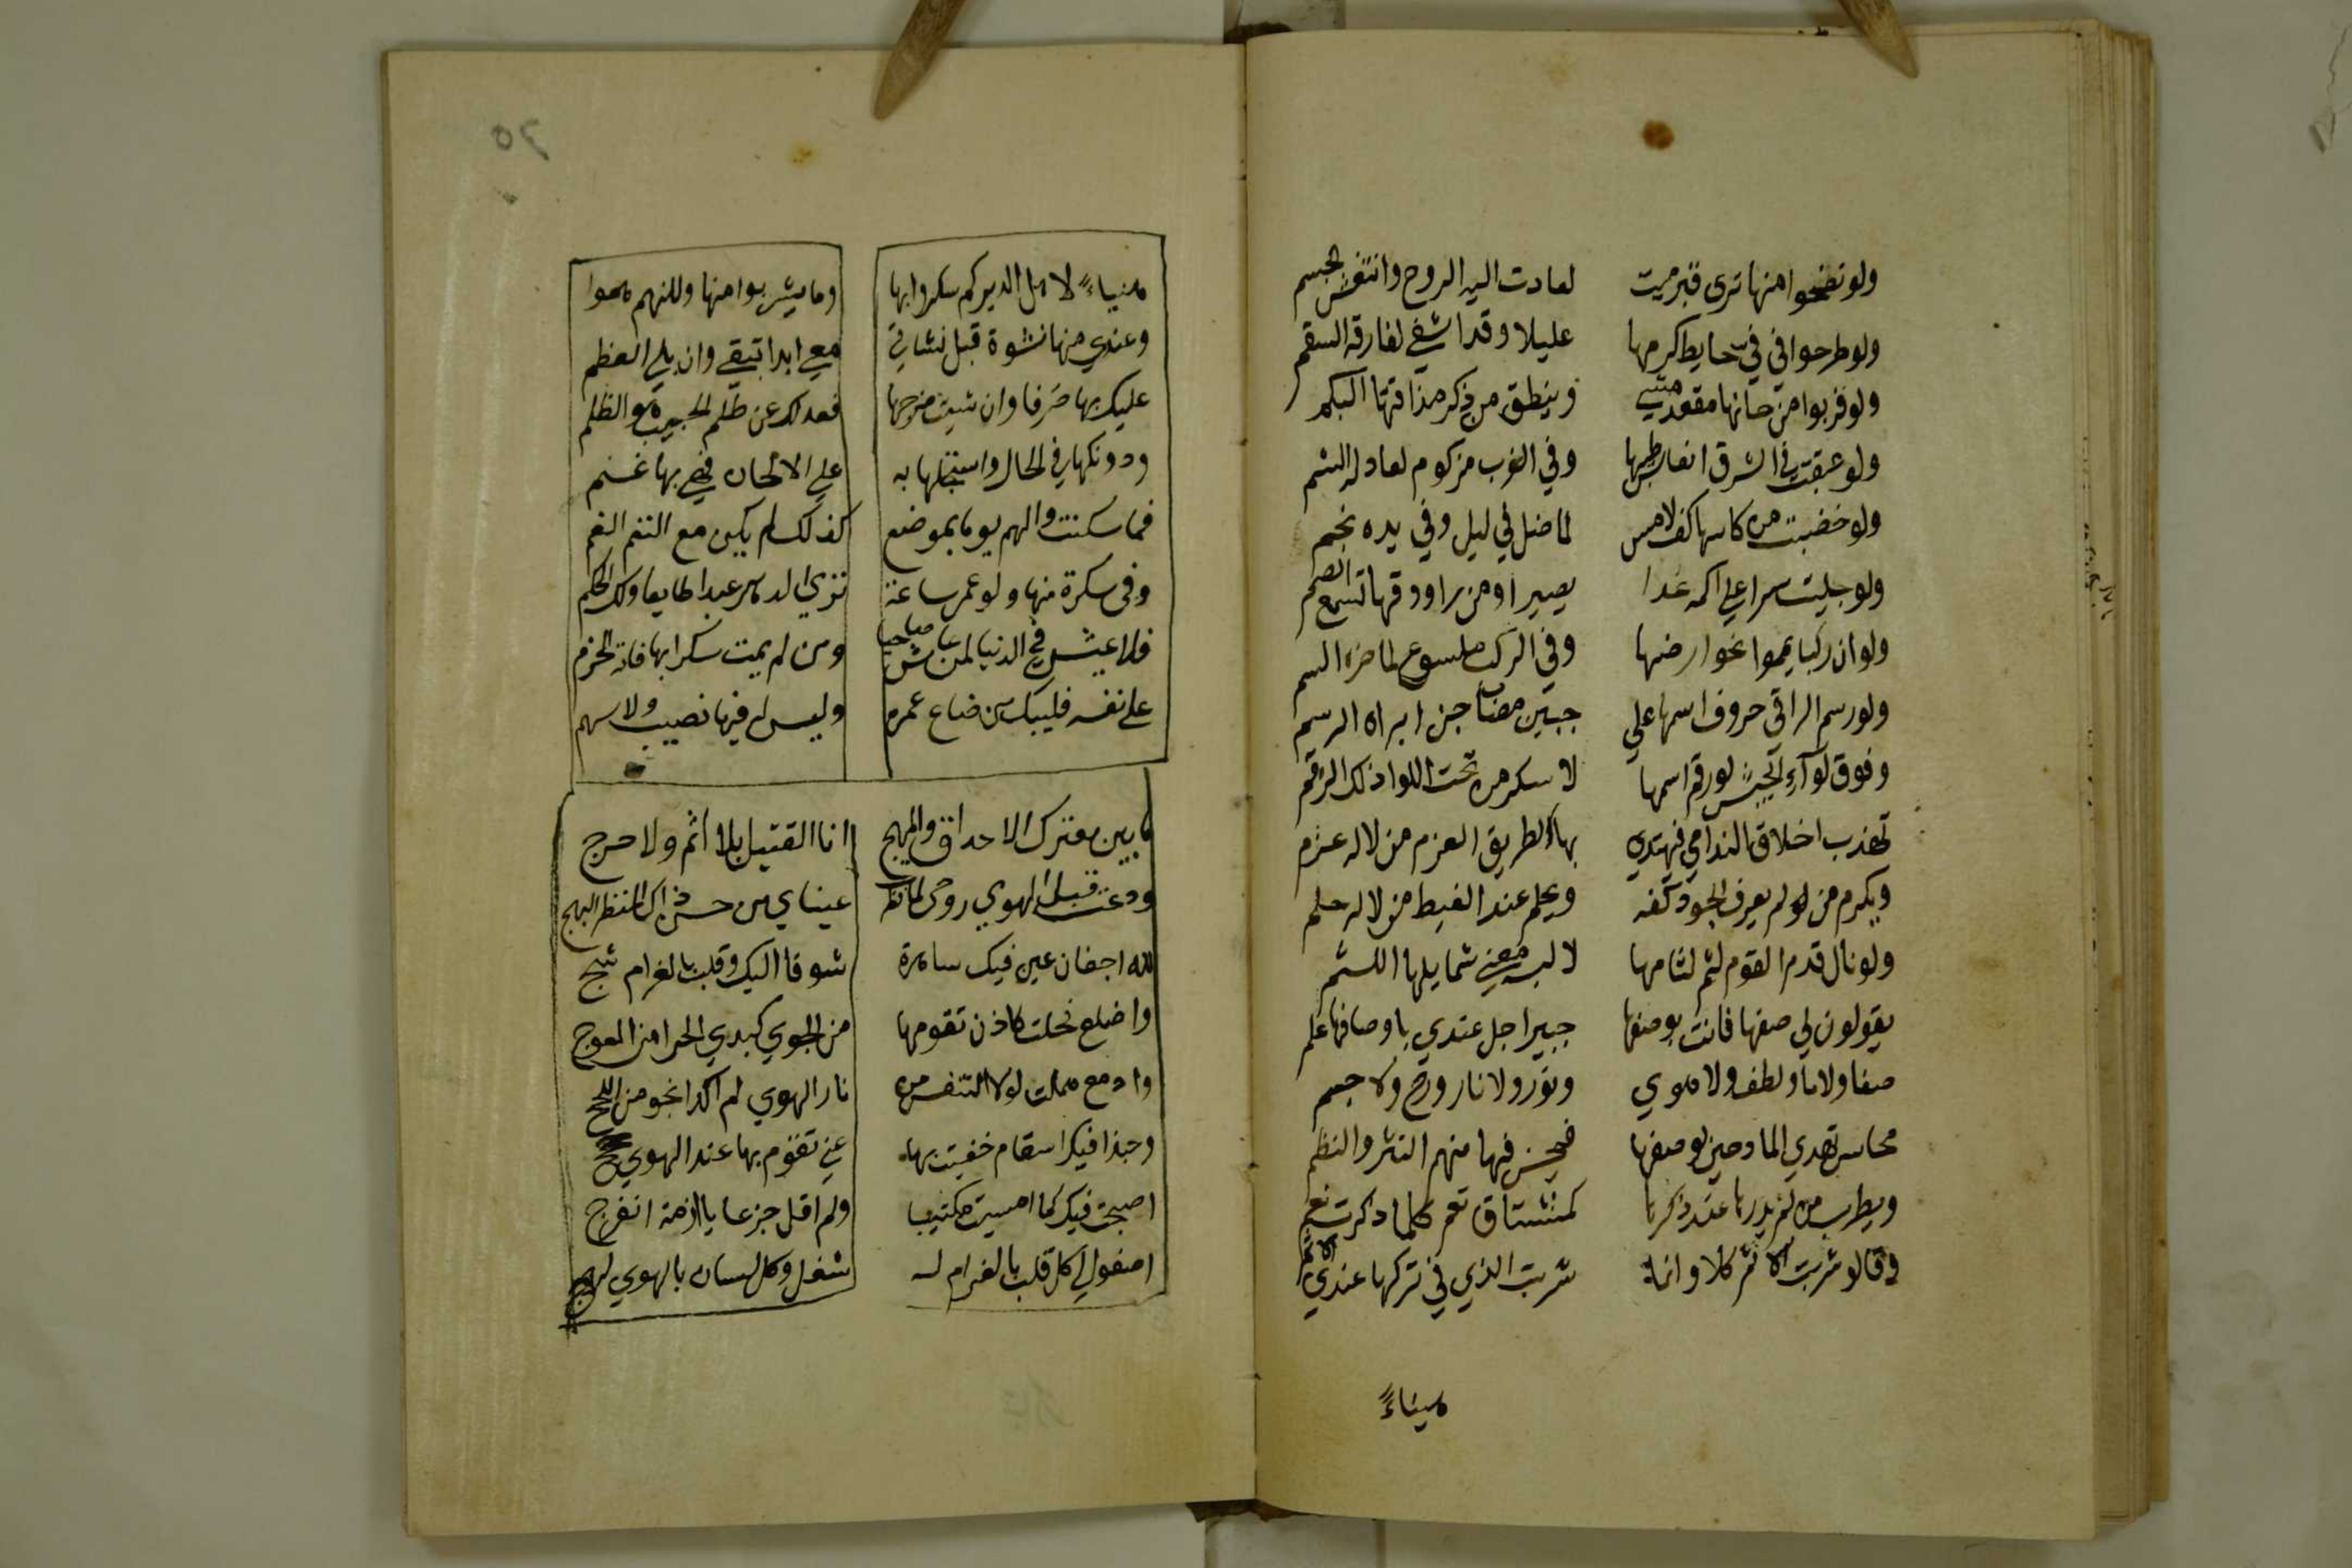 ولو نضحوا منها ثرى قبر ميت لعادت اليه الروح وانتعش الجسم
ولو طرحوا في في حايط كرمها عليلا وقد اشفى لفارقه السقم
ولو قربوا من حانها مقعد مشى وينطق من ذكر مذاقتها البكم
ولو عبقت في الشرق انفاس طيبها وفي الغرب مزكوم لعاد له الشم
ولو خضبت من كاسها كف لامس لما ضل في ليل وفي يده نجم
ولو جليت سرا علي اكمه غدا بصيرا ومن راووقها تسمع الصم
ولو ان ركبا يمموا نحو ارضها وفي الركب ملسوع لما ضره السم
ولو رسم الراقي حروف اسمها علي جبين مصاب جن ابراه الرسم
وفوق لوآء الجيش لو رقم اسمها لاسكر من تحت اللوا ذلك الرقم
تهذب اخلاق الندامي فيهتدي بها لطريق العزم من لا له عزم
ويكرم من لو لم يعرف الجود كفه ويحلم عند الغيظ من لا له حلم
ولو نال قدم القوم لثم لثامها لا لبسه معني شمايلها اللثم
يقولون لي صفها فانت بوصفها خبير اجل عندي باوصافها علم
صفا ولا ماء ولطف ولا هوي ونور ولا نار وروح ولا جسم
محاسن تهدي المادحين لوصفها فيحسن فيها منهم النثر والنظم
ويطرب من لم يدرها عند ذكرها كمشتاق نعم كلما ذكرت نعم
وقالو شربت الاثم كلا وانما شربت الذي في تركها عندي الاثم
هنياءً
هنياءً لاهل الدير كم سكروا بها وما يشربوا منها وللنهم هموا
وعندي منها نشوة قبل نشاتي معي ابدا تبقي وان بلي العظم
عليك بها صرفا وان شيت مزجها فعدلك عن ظلم الحبيب هو الظلم
ودونكها في الحان واستجلها به علي الالحان فهي بها غنم
فما سكنت والهم يوما بموضع كذلك لم يكن مع النغم الغم
وفي سكرة منها ولو عمر ساعة تري الدهر عبدا طايعا ولك الحكم
فلا عيش في الدنيا لمن عاش صاحيا ومن لم يمت سكرا بها فاته الحزم
علي نفسه فليبك من ضاع عمره وليس له فيها نصيب ولا سهم
ما بين معترك الاحداق والمهج انا القتيل بلا اثم ولا حرج
ودعت قبل الهوي روحي لما نظرت عيناي من حسن ذاك المنظر البهج
لله اجفان عين فيك ساهرة شوقا اليك وقلب بالغرام شج
واضلع نحلت كادن تقومها من الجوي كبدي الحرا من العوج
وادمع هملت لولا التنفس من نار الهوي لم اكد انجو من اللجج
وحبذا فيك اسقام خفيت بها عني تقوم بها عند الهوي
اصبحت فيك كما امسيت مكتيبا ولم اقل جزعا يا ازمة انفرج
اصفوا الي كل قلب بالغرام له شغل وكل لسان بالهوي لهج